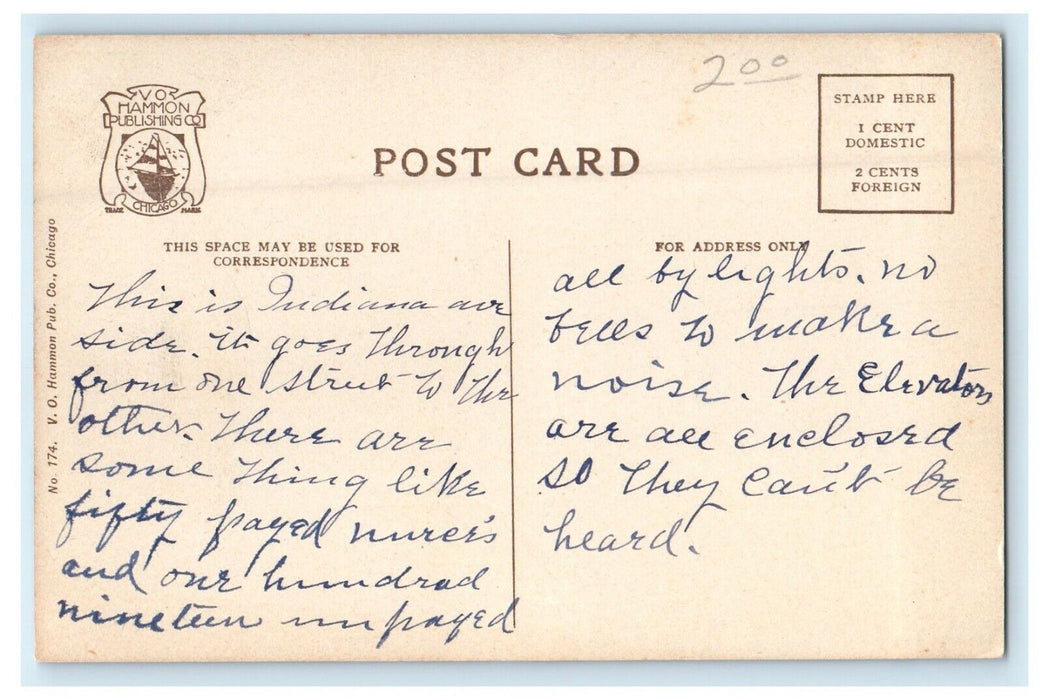 2 00
V O
HAMMON
PUBLISHING CO
TRADE CHICAGO MARK
POST CARD
STAMP HERE
1 CENT
DOMESTIC
2 CENTS
FOREIGN
No. 174. V. O. Hammon Pub. Co., Chicago
THIS SPACE MAY BE USED FOR
CORRESPONDENCE
This is Indiana ave
side. it goes through
from one street to the
other. There are
some thing like
fifty payed nurce's
and one hundrad
nineteen un payed
FOR ADDRESS ONLY
all by lights. no
bells to make a
noise. The Elevators
are all enclosed
so they can't be
heard.